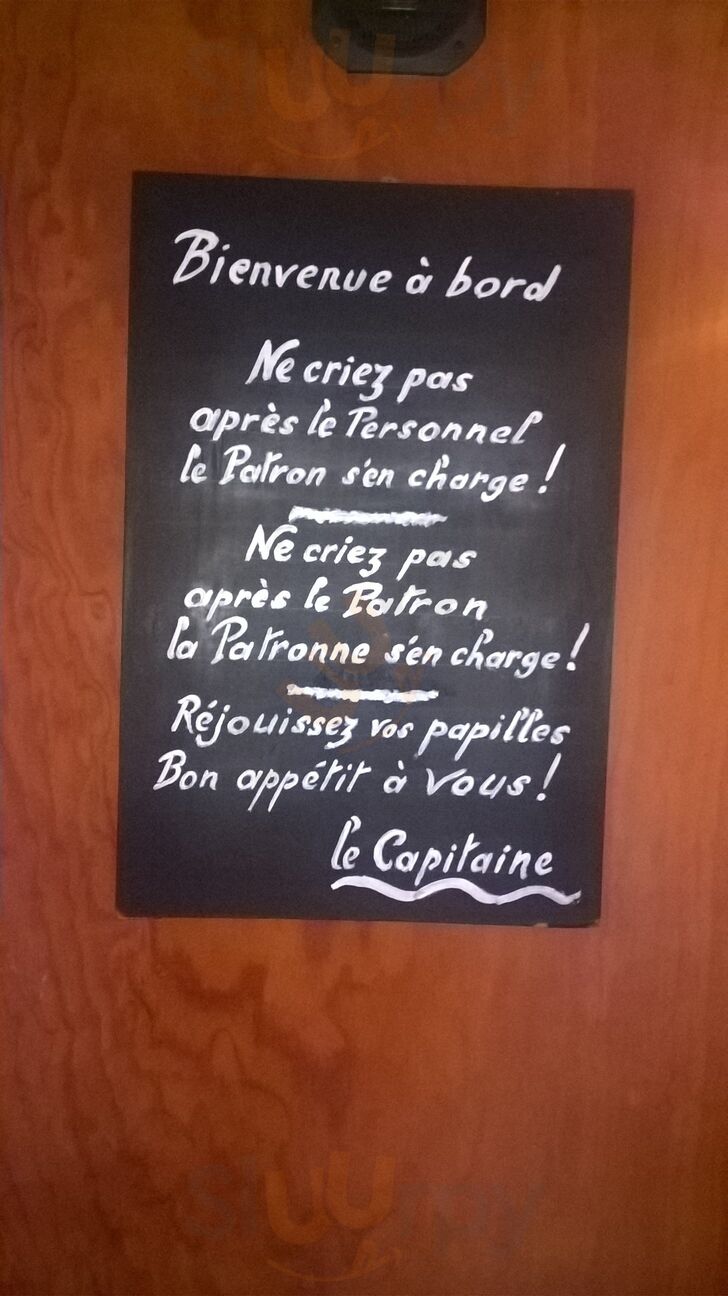 Sluurpy
Bienvenue à bord
Ne criez pas
après le Personnel
le Patron s'en charge !
Ne criez pas
après le Patron
la Patronne s'en charge !
Réjouissez vos papilles
Bon appétit à vous !
le Capitaine
Sluurpy